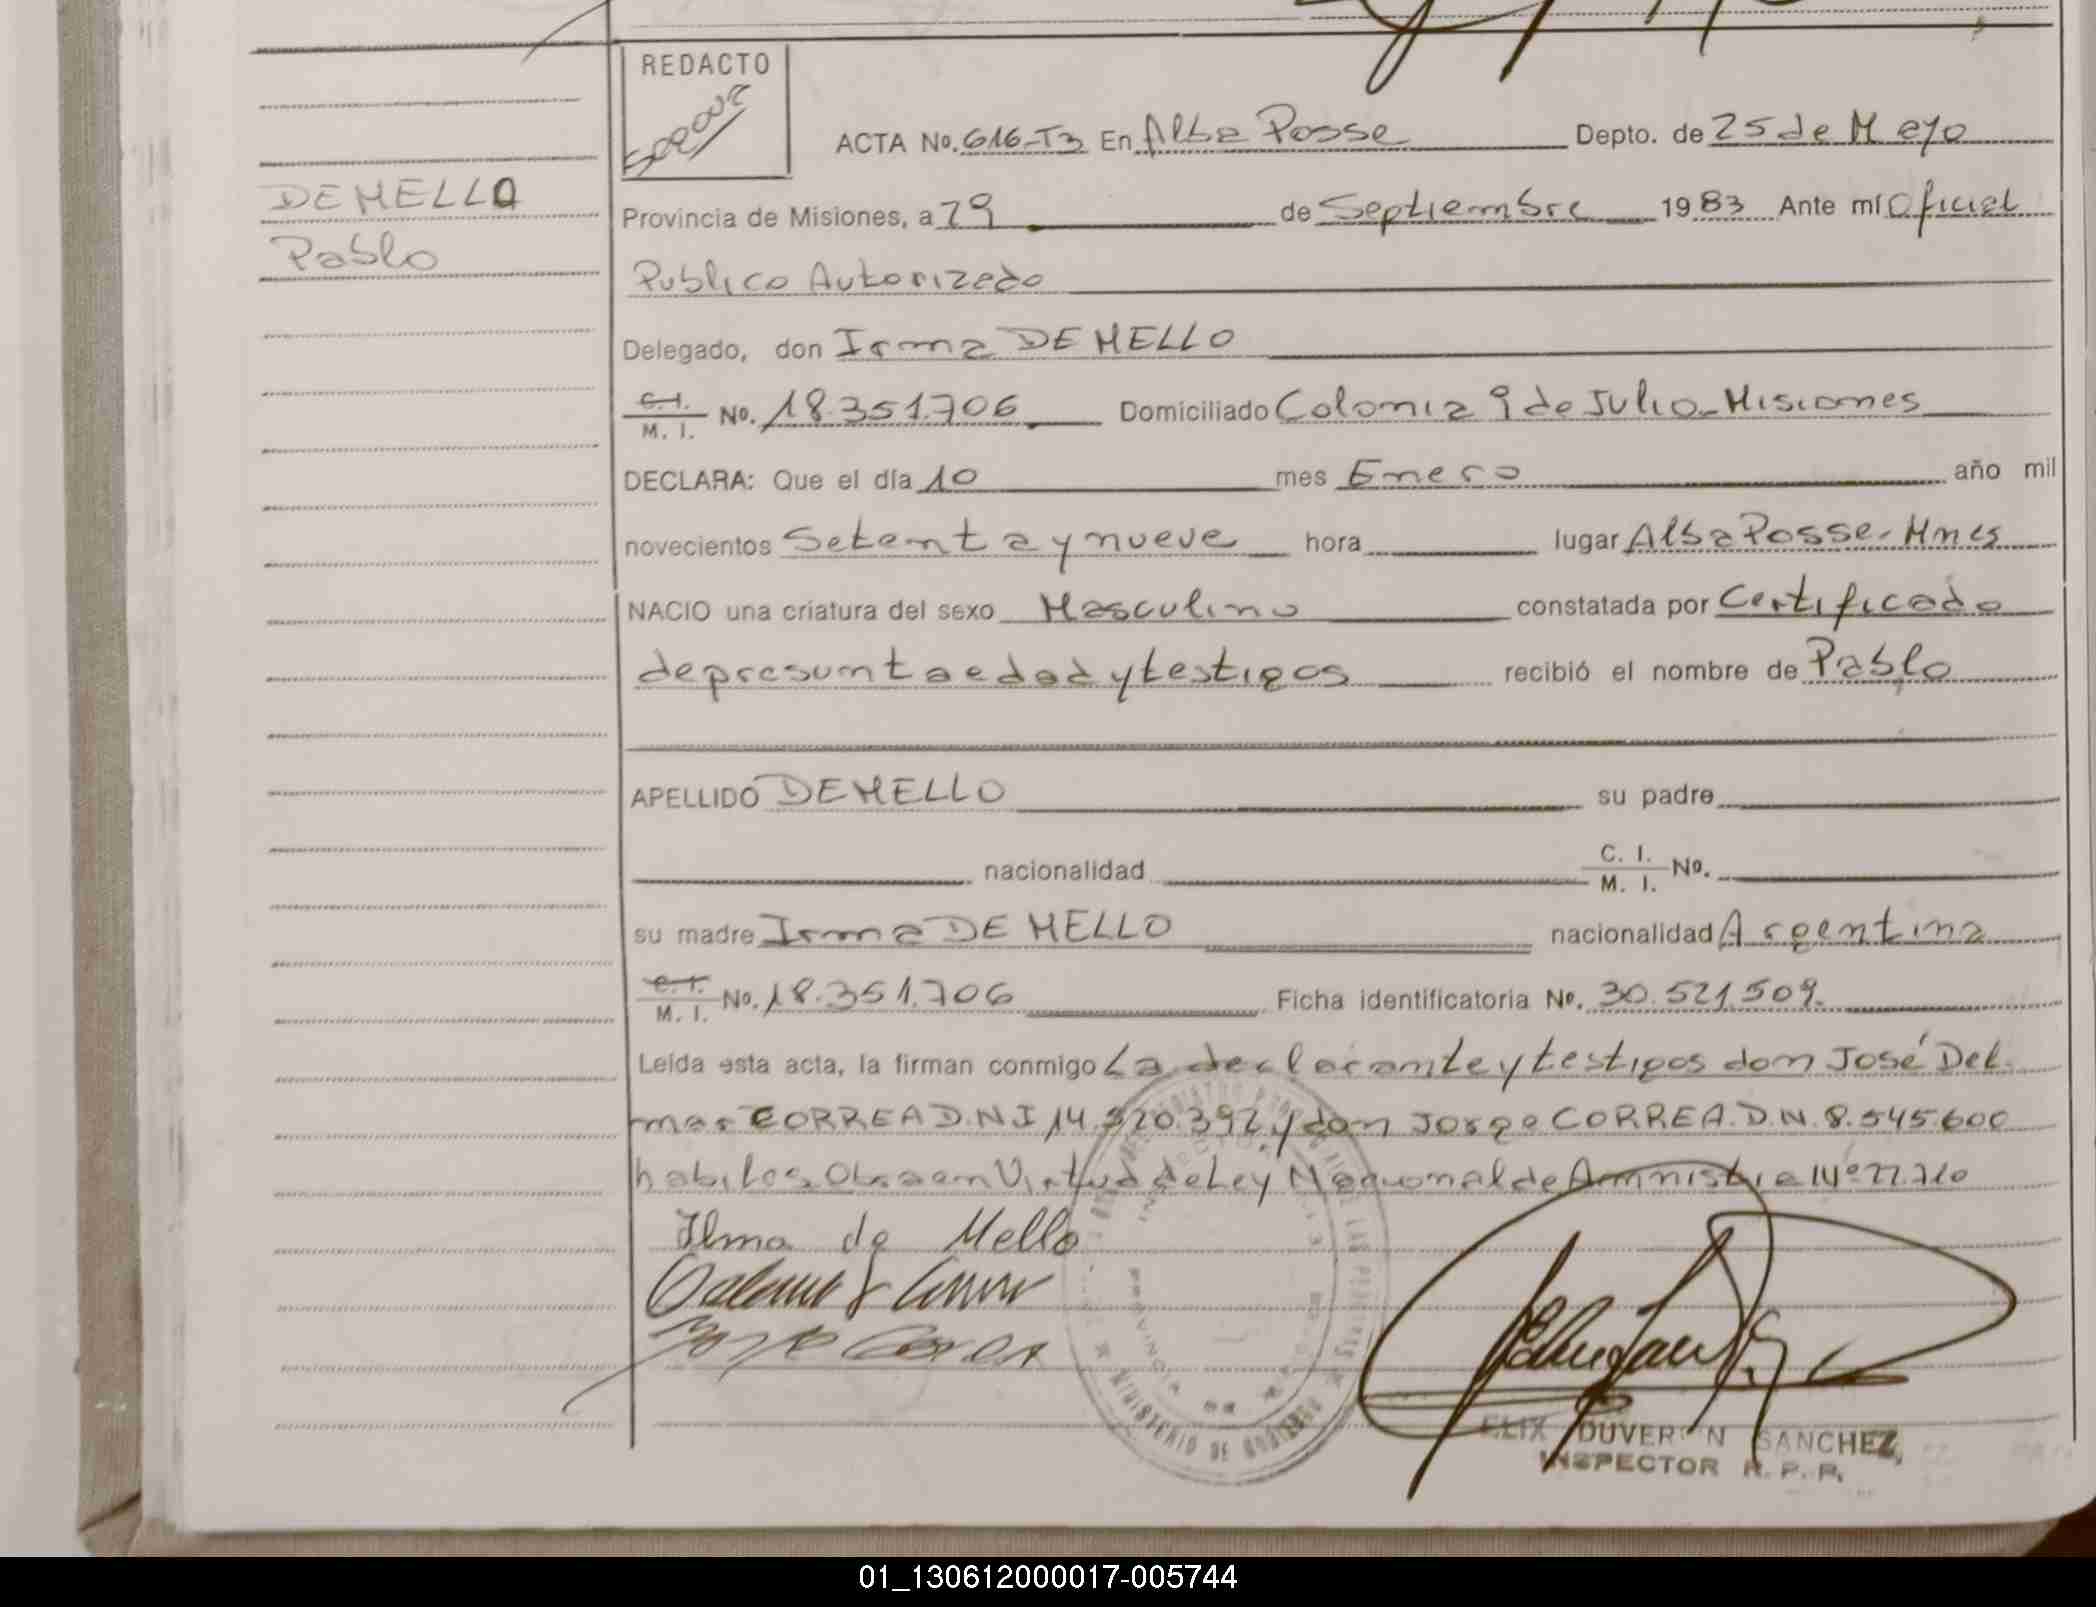 REDACTO
ACTA No. 616-T3 En Alba Posse Depto. de 25 de Mayo
DEMELLO
Provincia de Misiones, a 29 de Septiembre 1983 Ante mí Oficial
Pablo
Publico Autorizado
Delegado, don Irma DE MELLO
C.I. M. I. No. 18.351.706 Domiciliado Colonia 9 de Julio - Misiones
DECLARA: Que el día 10 mes Enero año mil
novecientos Setenta y nueve hora lugar Alba Posse - Mnes
NACIO una criatura del sexo Masculino constatada por Certificado
de presunta edad y testigos recibió el nombre de Pablo
APELLIDO DEMELLO su padre
nacionalidad C. I. M. I. No.
su madre Irma DE MELLO nacionalidad Argentina
C.I. M. I. No. 18.351.706 Ficha identificatoria No. 30.521.509.
Leída esta acta, la firman conmigo La declarante y testigos don José Del
mar CORREA D.N.I 14.320.392 y don Jorge CORREA. D.N. 8.545.600
habiles. Obra en Virtud de Ley Nacional de Amnistia Nº 22.710
Ilma de Mello
Jorge Correa
MINISTERIO DE GOBIERNO
PROVINCIA DE MISIONES
FELIX DUVERON SANCHEZ
INSPECTOR R. P. P.
01_130612000017-005744